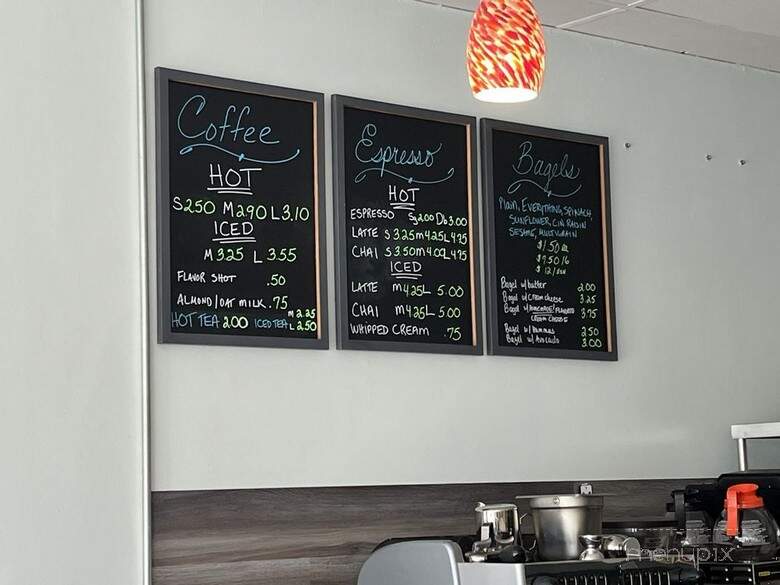 Coffee
HOT
S 2.50 M 2.90 L 3.10
ICED
M 3.25 L 3.55
FLAVOR SHOT .50
ALMOND/OAT MILK .75
HOT TEA 2.00 ICED TEA M 2.25
L 2.50
Espresso
HOT
ESPRESSO Sg 2.00 Db 3.00
LATTE S 3.25 M 4.25 L 4.75
CHAI S 3.50 M 4.00 L 4.75
ICED
LATTE M 4.25 L 5.00
CHAI M 4.25 L 5.00
WHIPPED CREAM .75
Bagels
Plain, EVERYTHING, SPINACH,
SUNFLOWER, CIN RAISIN
SESAME, MULTIGRAIN
$1.50 ea
$7.50/6
$12/
Bagel w/ butter 2.00
Bagel w/ cream cheese 3.25
Bagel w/ HOMEMADE/FLAVORED 3.75
CREAM CHEESE
Bagel w/ Hummus 2.50
Bagel w/ Avocado 3.00
menupix